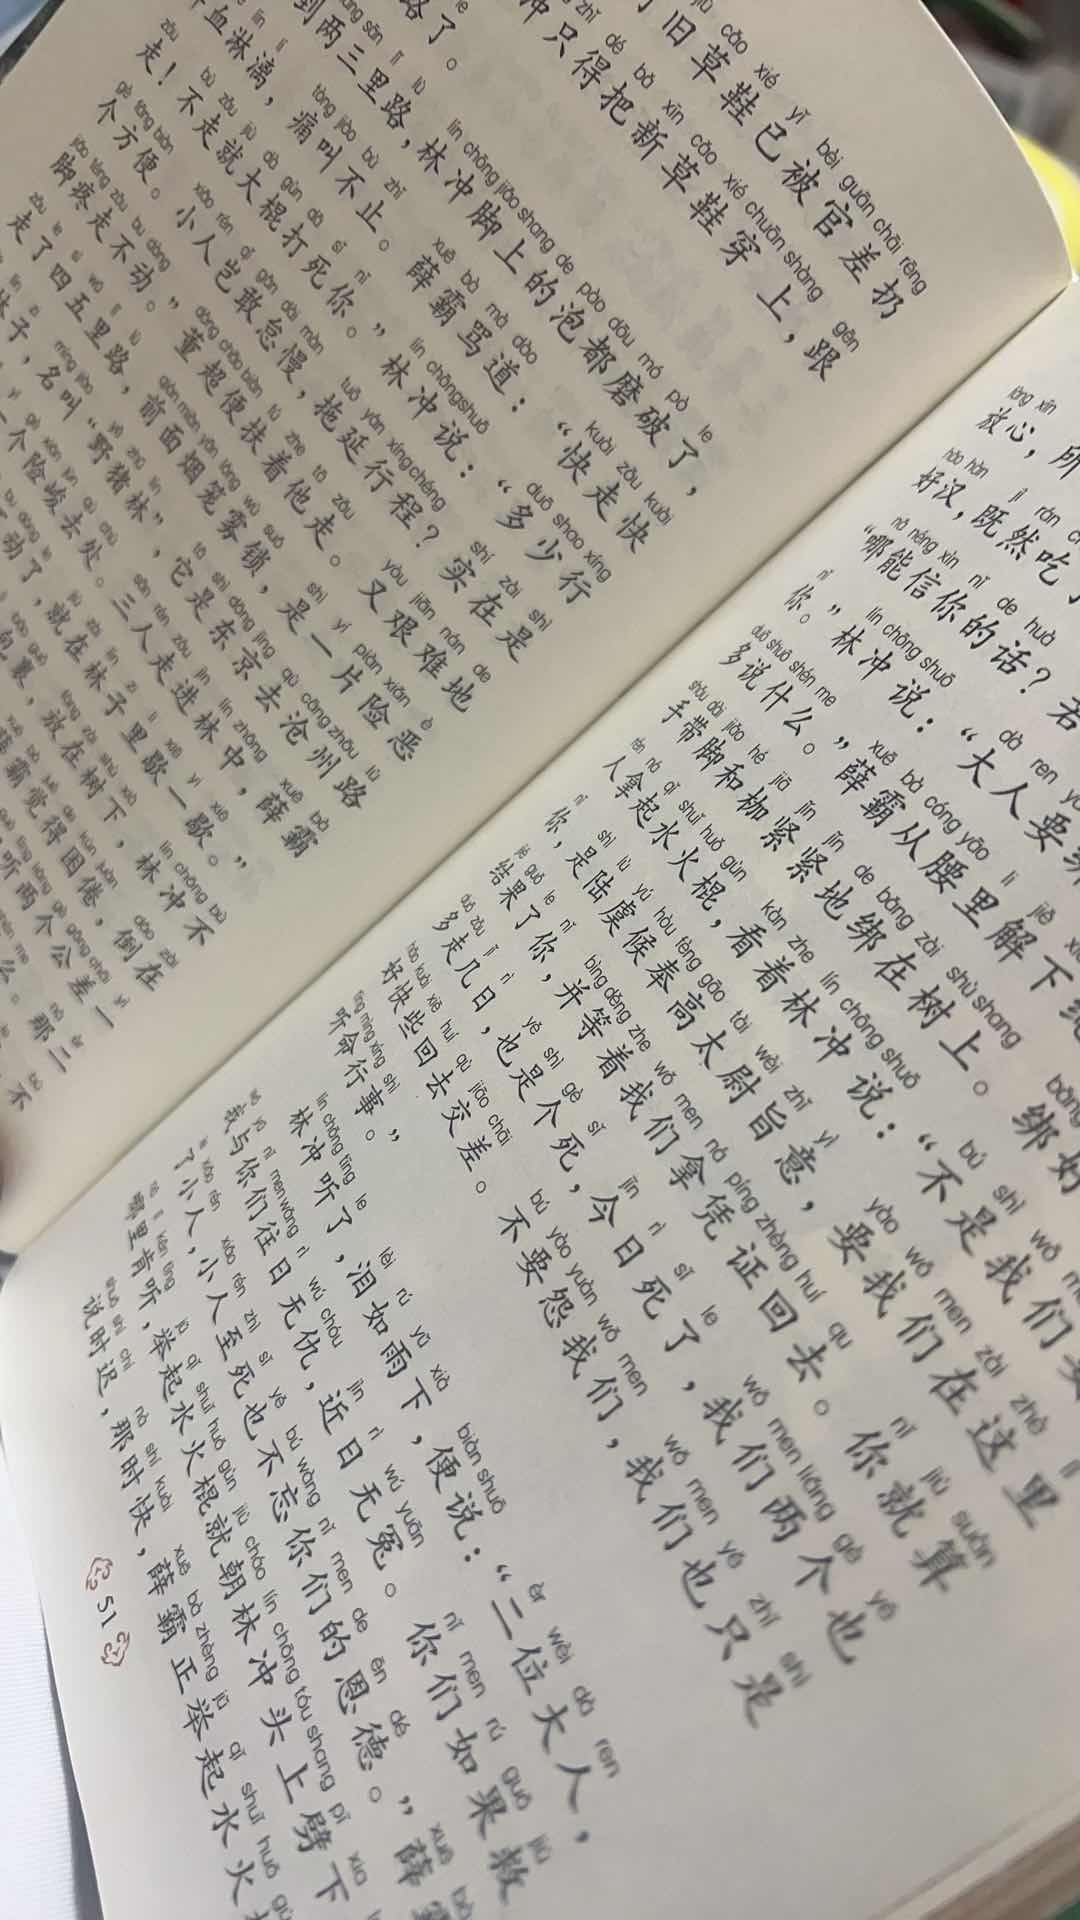 旧草鞋已被官差扔
冲只得把新草鞋穿上，跟
路了。
到两三里路，林冲脚上的泡都磨破了，
血淋漓，痛叫不止。薛霸骂道：“快走快
走！不走就大棍打死你。”林冲说：“多少行
个方便。小人岂敢怠慢，拖延行程？实在是
脚疼走不动。”董超便扶着他走。又艰难地
走了四五里路，前面烟笼雾锁，是一片险恶
林子，名叫“野猪林”，它是东京去沧州路
一个险峻去处。三人走进林中，薛霸
动了，就在林子里歇一歇。”
包裹，放在树下，林冲不
薛霸觉得困倦，倒在
听两个公差一
么。那二
不
放心，所
好汉，既然吃了
“哪能信你的话？若
你。”林冲说：“大人要绑
多说什么。”薛霸从腰里解下
手带脚和枷紧紧地绑在树上。绑好
人拿起水火棍，看着林冲说：“不是我们要
你，是陆虞候奉高太尉旨意，要我们在这里
结果了你，并等着我们拿凭证回去。你就算
多走几日，也是个死，今日死了，我们两个也
好快些回去交差。不要怨我们，我们也只是
听命行事。”
林冲听了，泪如雨下，便说：“二位大人，
我与你们往日无仇，近日无冤。你们如果救
了小人，小人至死也不忘你们的恩德。”薛霸
哪里肯听，举起水火棍就朝林冲头上劈下
说时迟，那时快，薛霸正举起水火
51